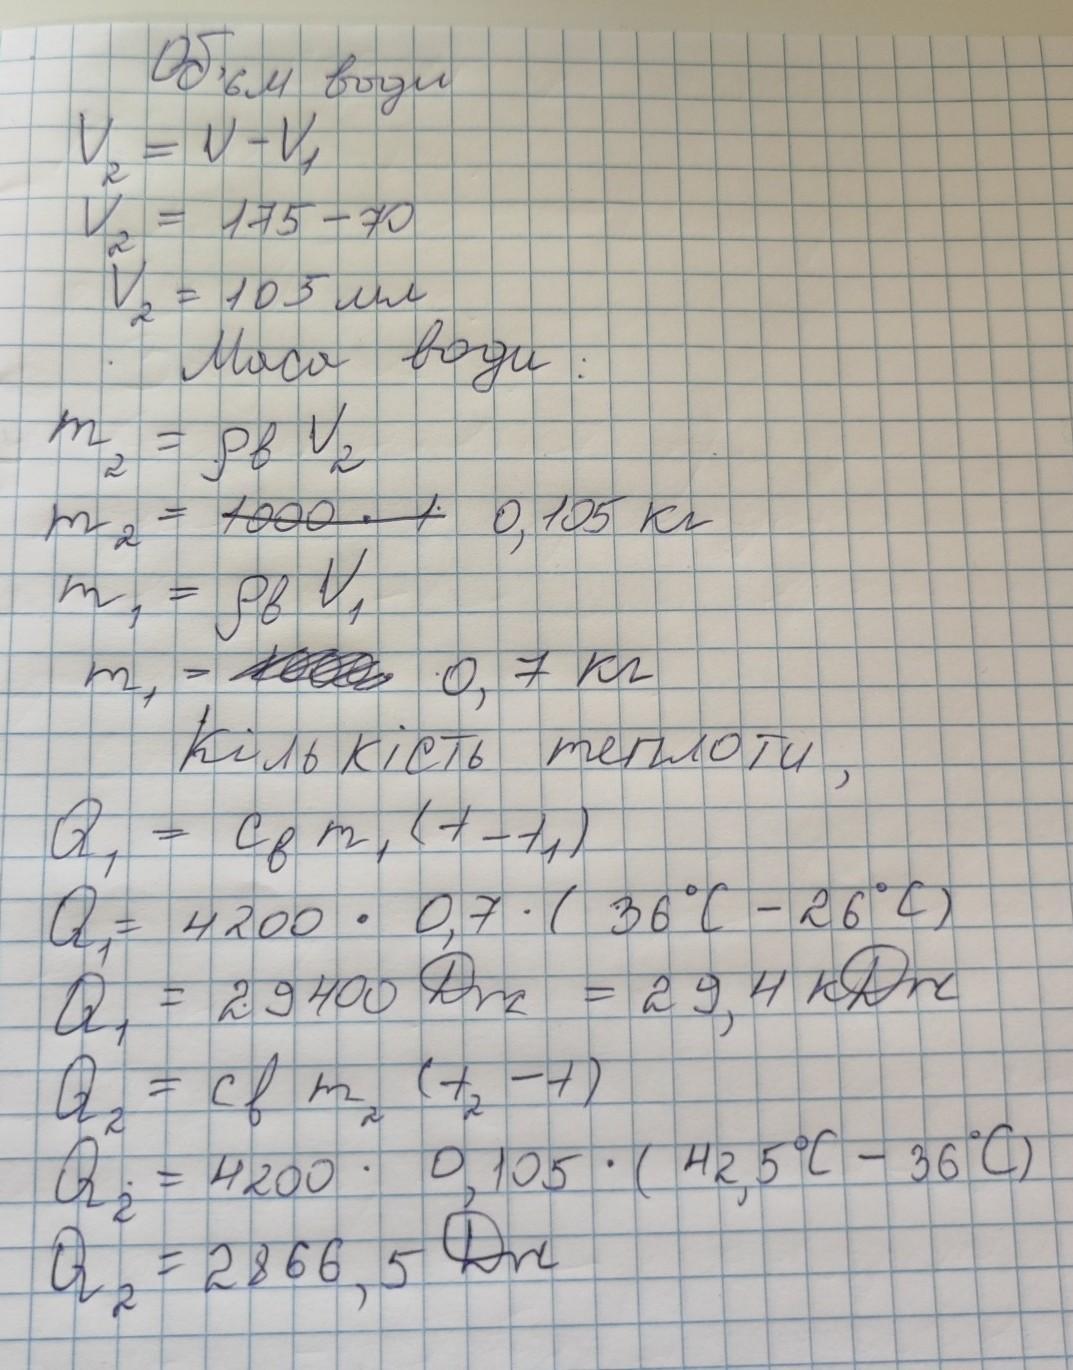 Об'єм води
V₂ = V - V₁
V₂ = 175 - 70
V₂ = 105 мл
Маса води:
m₂ = ρв V₂
m₂ = ~~1000 · 1~~ 0,105 кг
m₁ = ρв V₁
m₁ = ~~1000~~ 0,7 кг
Кількість теплоти,
Q₁ = cв m₁ (t - t₁)
Q₁ = 4200 · 0,7 · ( 36°C - 26°C)
Q₁ = 29400 Дж = 29,4 кДж
Q₂ = cв m₂ (t₂ - t)
Q₂ = 4200 · 0,105 · ( 42,5°C - 36°C)
Q₂ = 2866,5 Дж